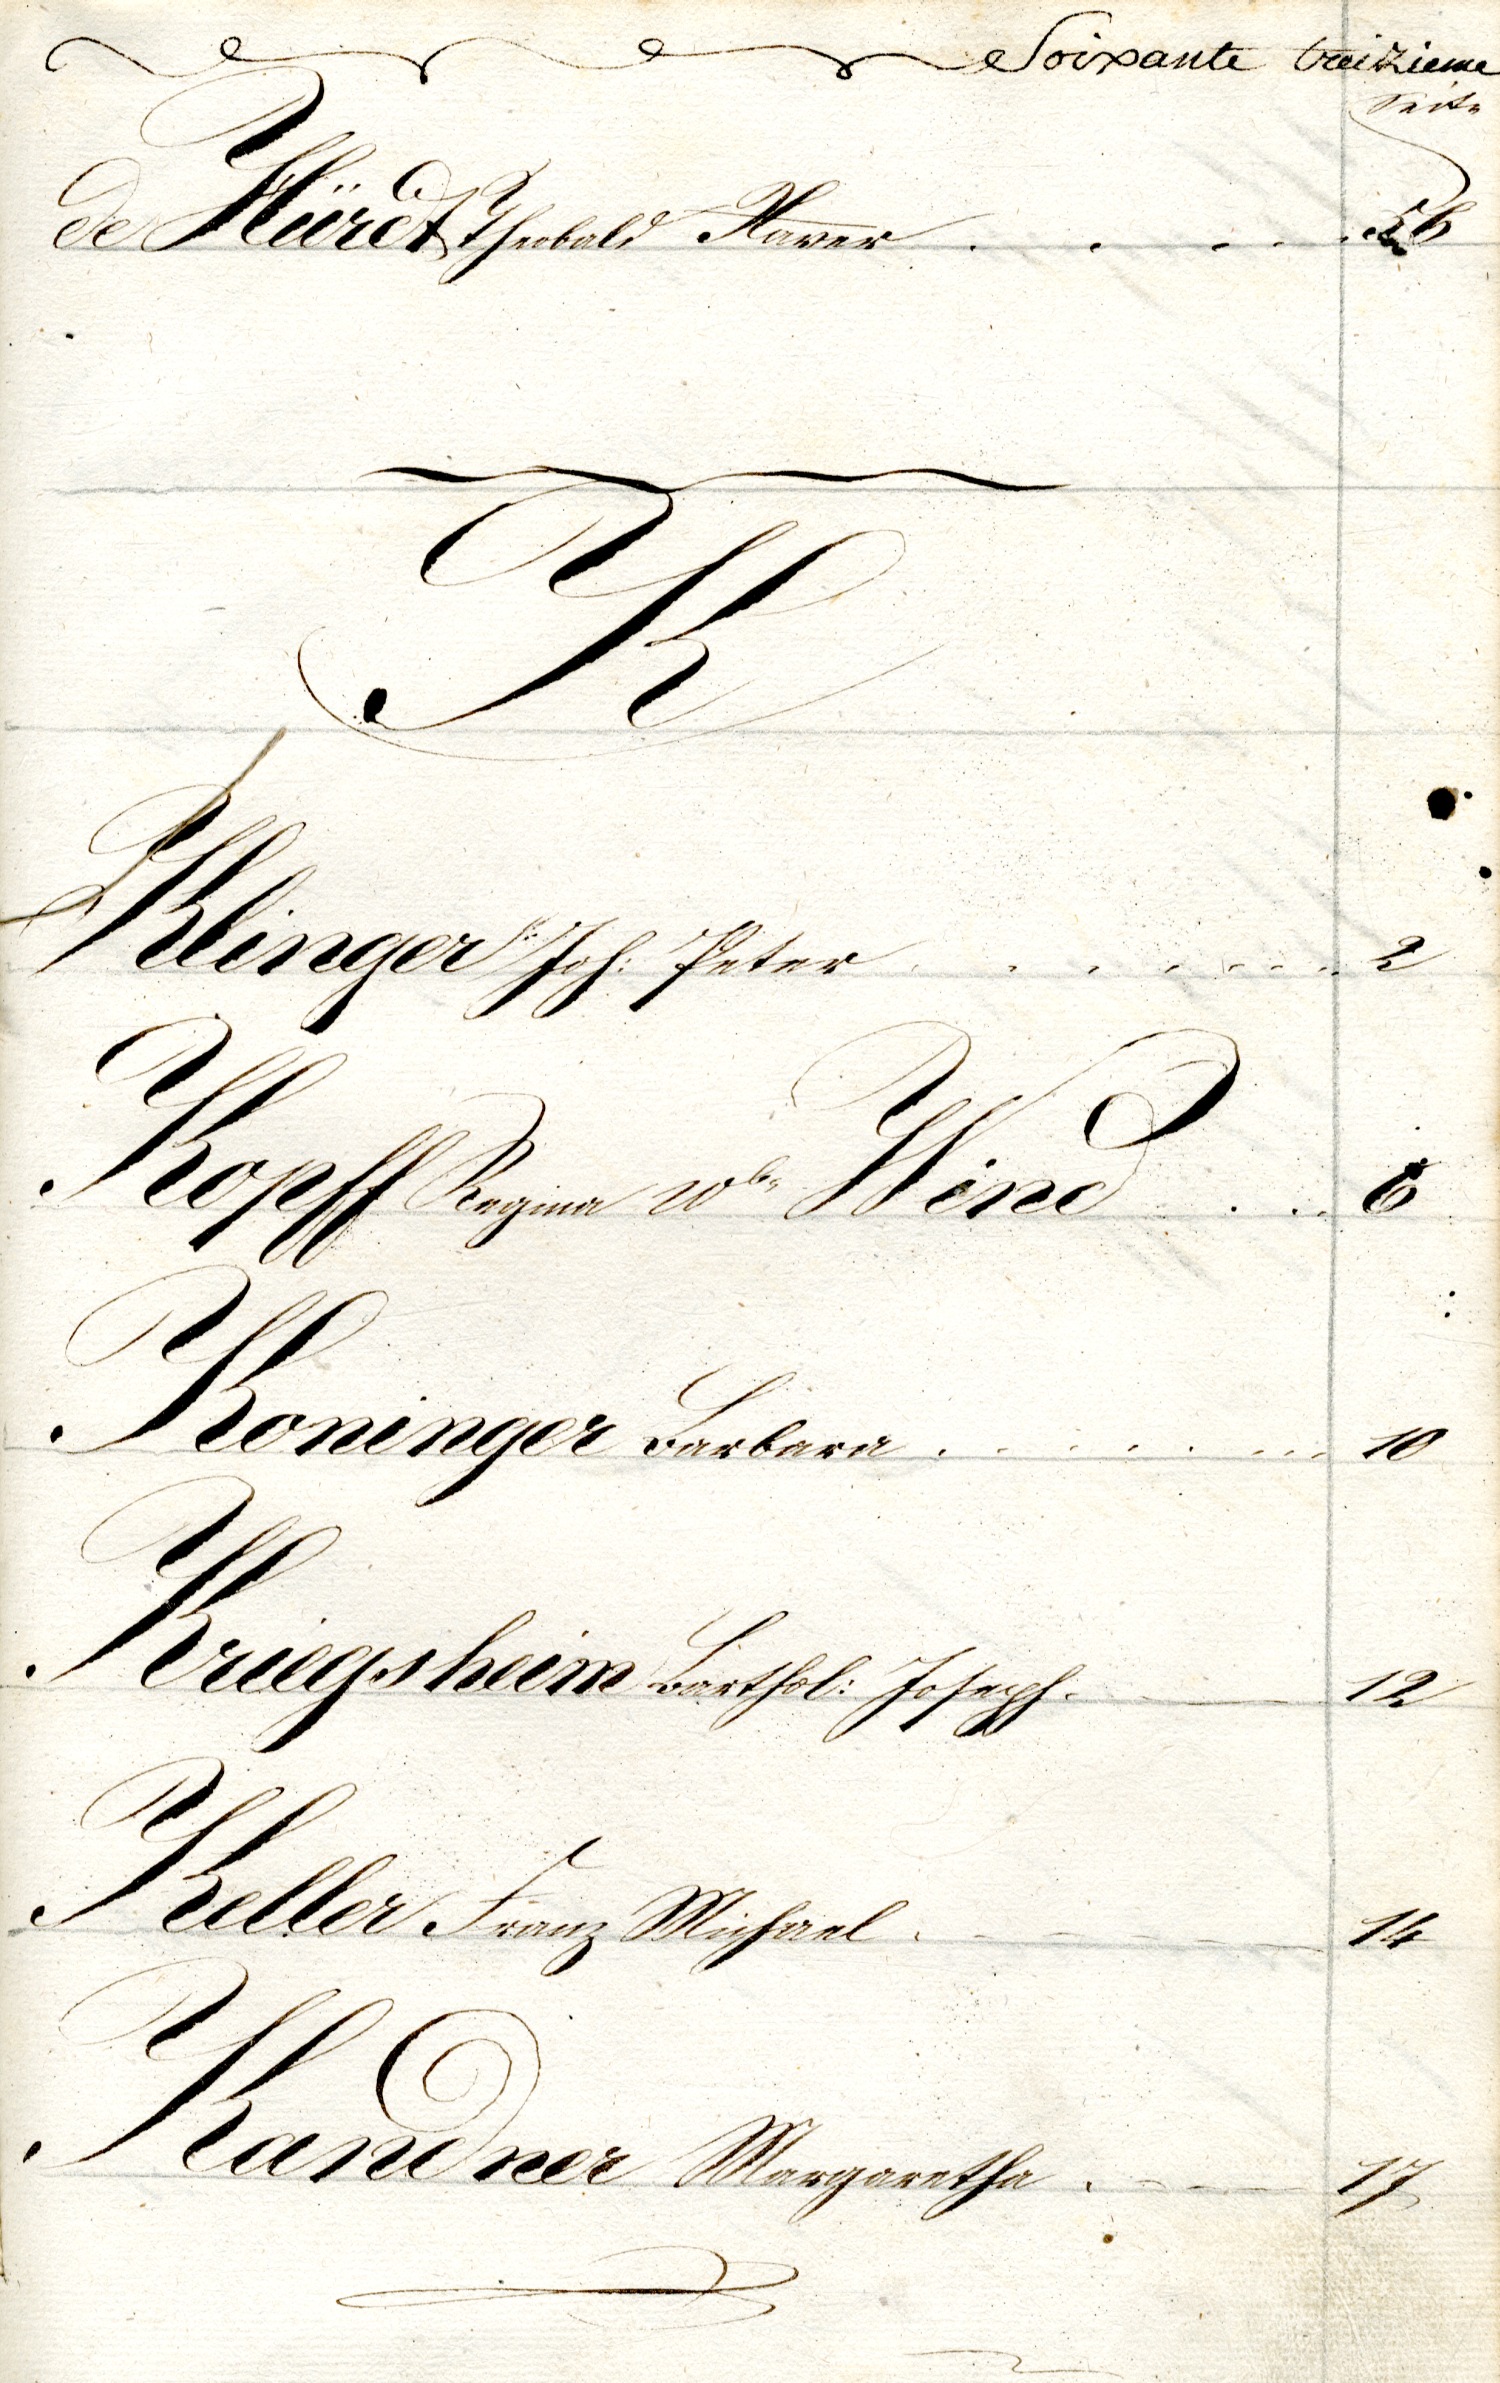 Soixante treizieme
Seite
de Hürdt Theobald Xaver . . . . . . 56
K
Klinger Joh: Peter . . . . . . . 2
Kopff Regina Wb. Wind . . . 6
Koninger Barbara . . . . . . . . 10
Kriegsheim Barthol: Joseph. 12
Keller Franz Michael . 14
Kandner Margaretha . 17